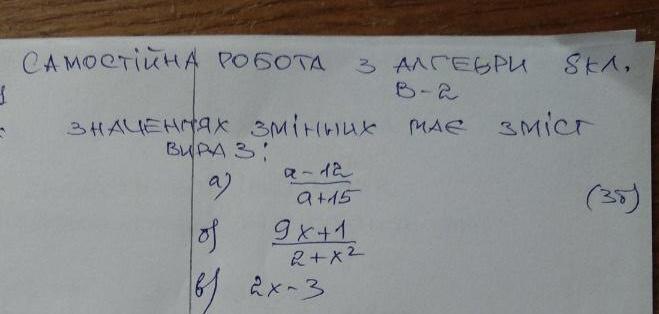 САМОСТІЙНА РОБОТА З АЛГЕБРИ 8 КЛ.
В-2
ЗНАЧЕННЯХ ЗМІННИХ МАЄ ЗМІСТ
ВИРАЗ:
а) (a-12)/(a+15) (3б)
б) (9x+1)/(2+x²)
в) 2x-3